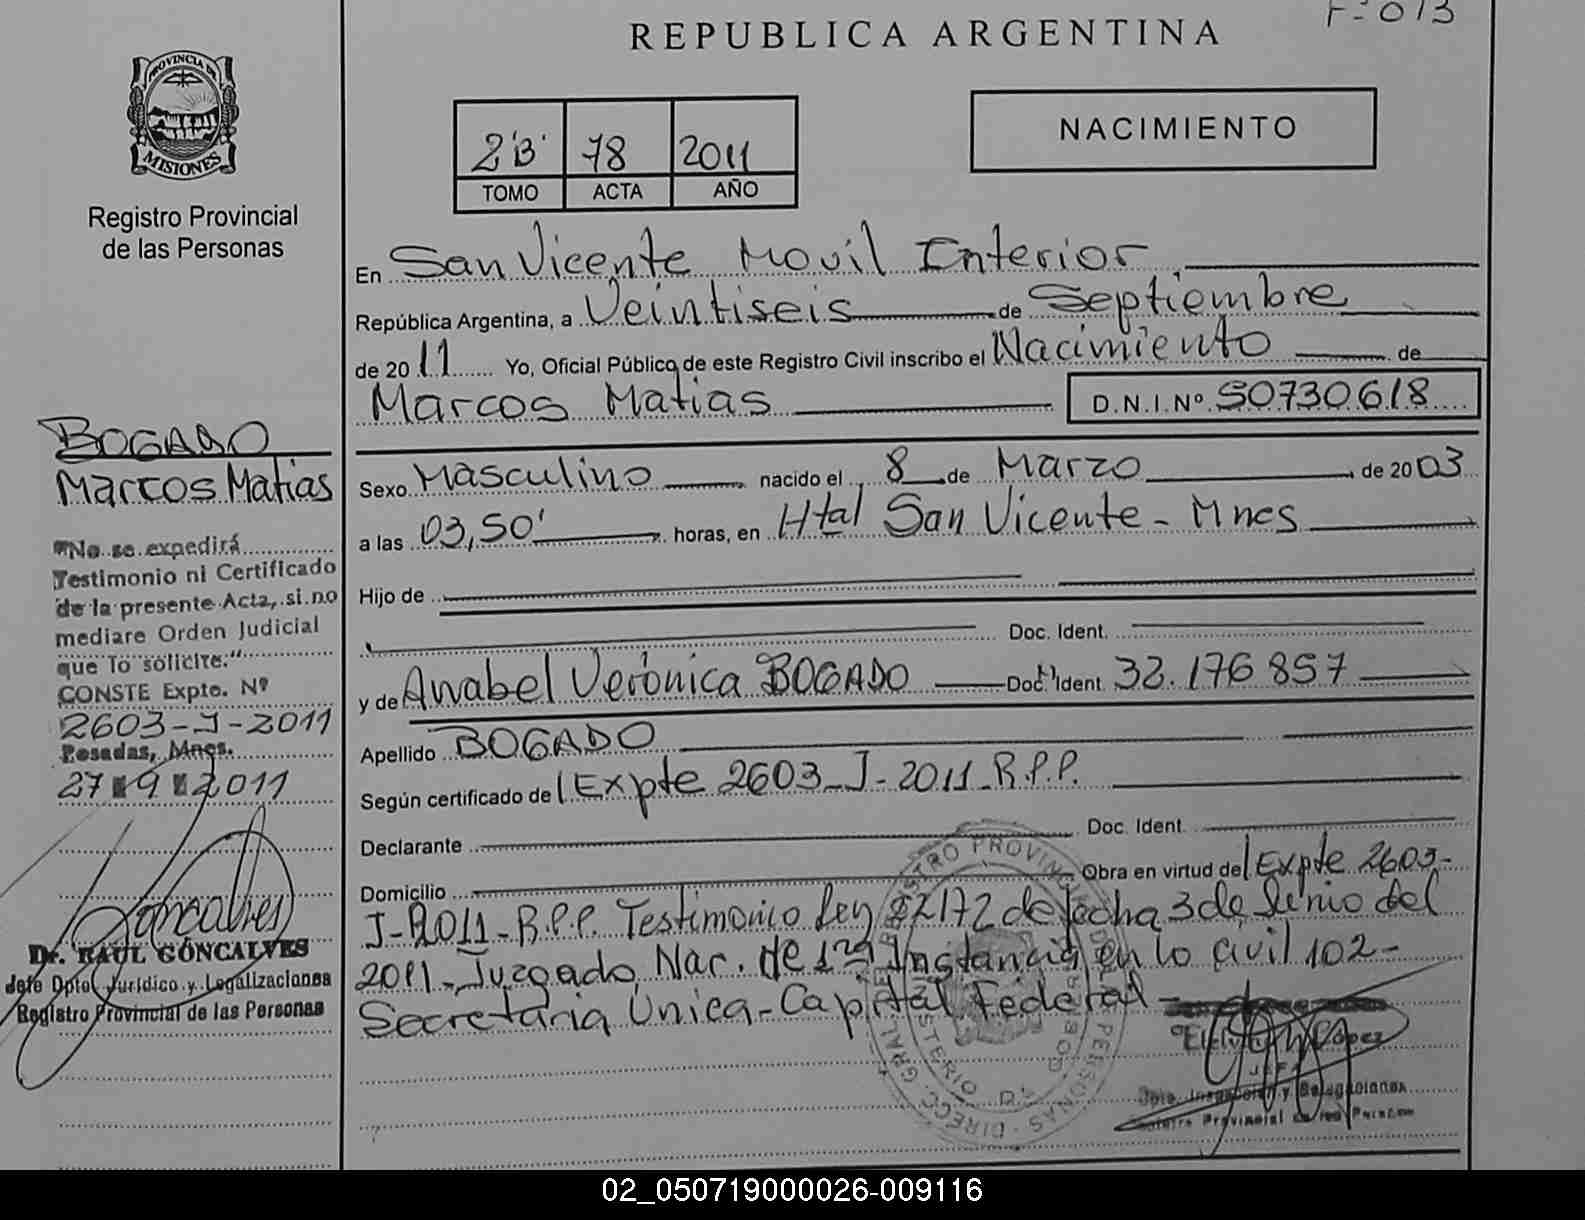 F=013
REPUBLICA ARGENTINA
PROVINCIA DE
MISIONES
Registro Provincial
de las Personas
2'B' 78 2011
TOMO ACTA AÑO
NACIMIENTO
En San Vicente Movil Interior
República Argentina, a Veintiseis de Septiembre
de 2011 Yo, Oficial Público de este Registro Civil inscribo el Nacimiento de
Marcos Matias D.N.I.Nº 50730618
Sexo Masculino nacido el 8 de Marzo de 2003
a las 03,50' horas, en Htal San Vicente - Mnes
Hijo de
Doc. Ident.
y de Anabel Verónica BOGADO Doc. Ident. 32.176857
Apellido BOGADO
Según certificado del Expte 2603-J-2011-R.P.P.
Declarante Doc. Ident.
Domicilio Obra en virtud del Expte 2603-
J-2011-R.P.P. Testimonio Ley 22172 de fecha 3 de Junio del
2011-Juzgado Nac. de 1ra Instancia en lo civil 102-
Secretaria Unica-Capital Federal-
BOGADO
Marcos Matias
"No se expedirá
Testimonio ni Certificado
de la presente Acta, si no
mediare Orden Judicial
que lo solicite."
CONSTE Expte. Nº
2603-J-2011
Posadas, Mnes.
27 9 2011
Goncalves
Dr. RAUL GONCALVES
Jefe Dpto. Jurídico y Legalizaciones
Registro Provincial de las Personas
López
JEFA
Dpto. Inspección y Delegaciones
Registro Provincial de las Personas
02_050719000026-009116